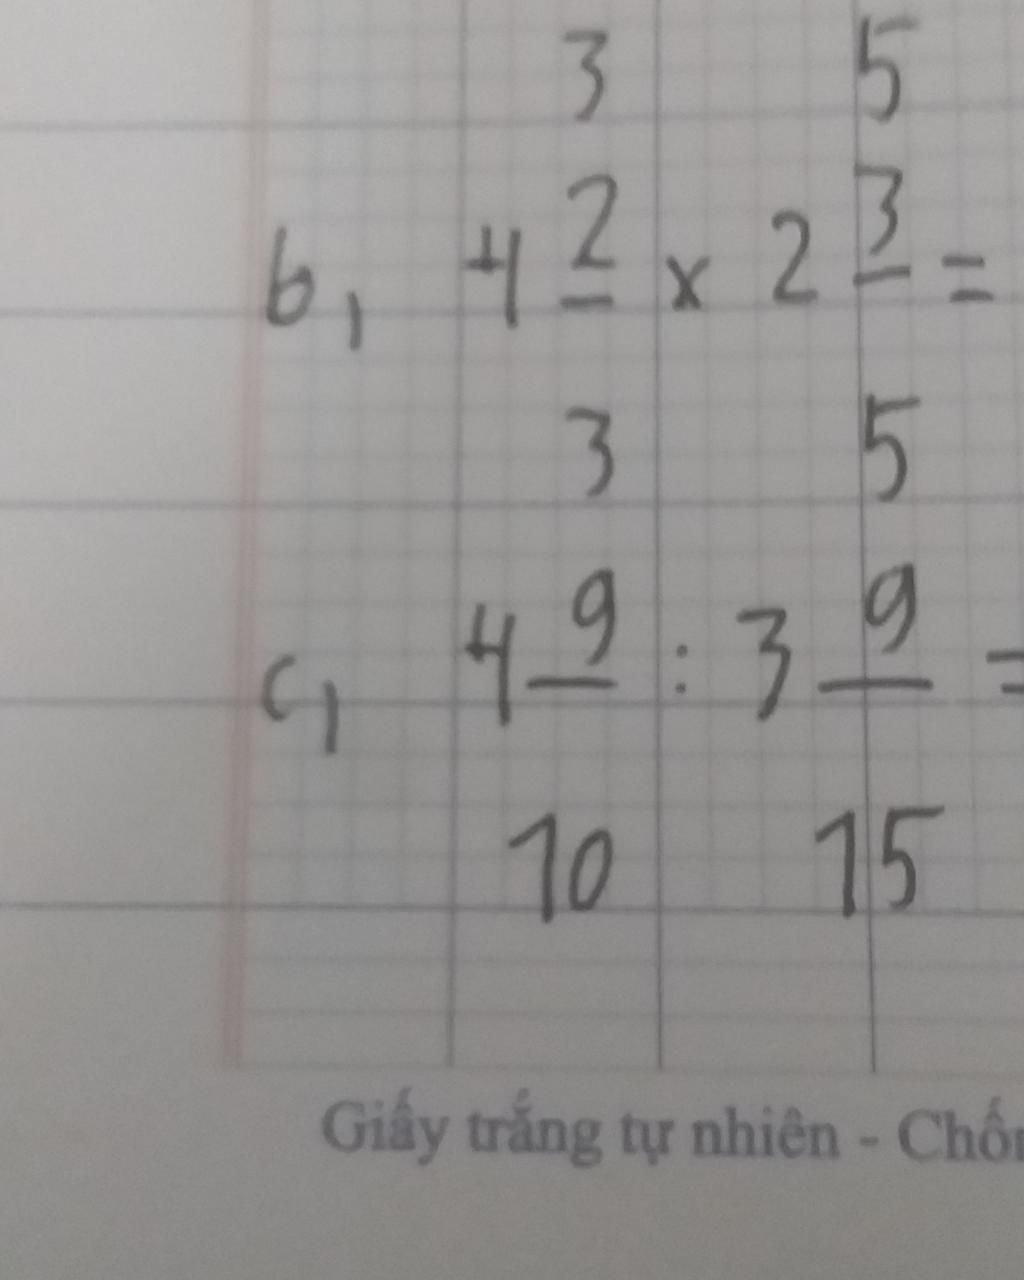 3 5
b, 4 2/3 x 2 3/5 =
c, 4 9/10 : 3 9/15 =
Giấy trắng tự nhiên - Chố